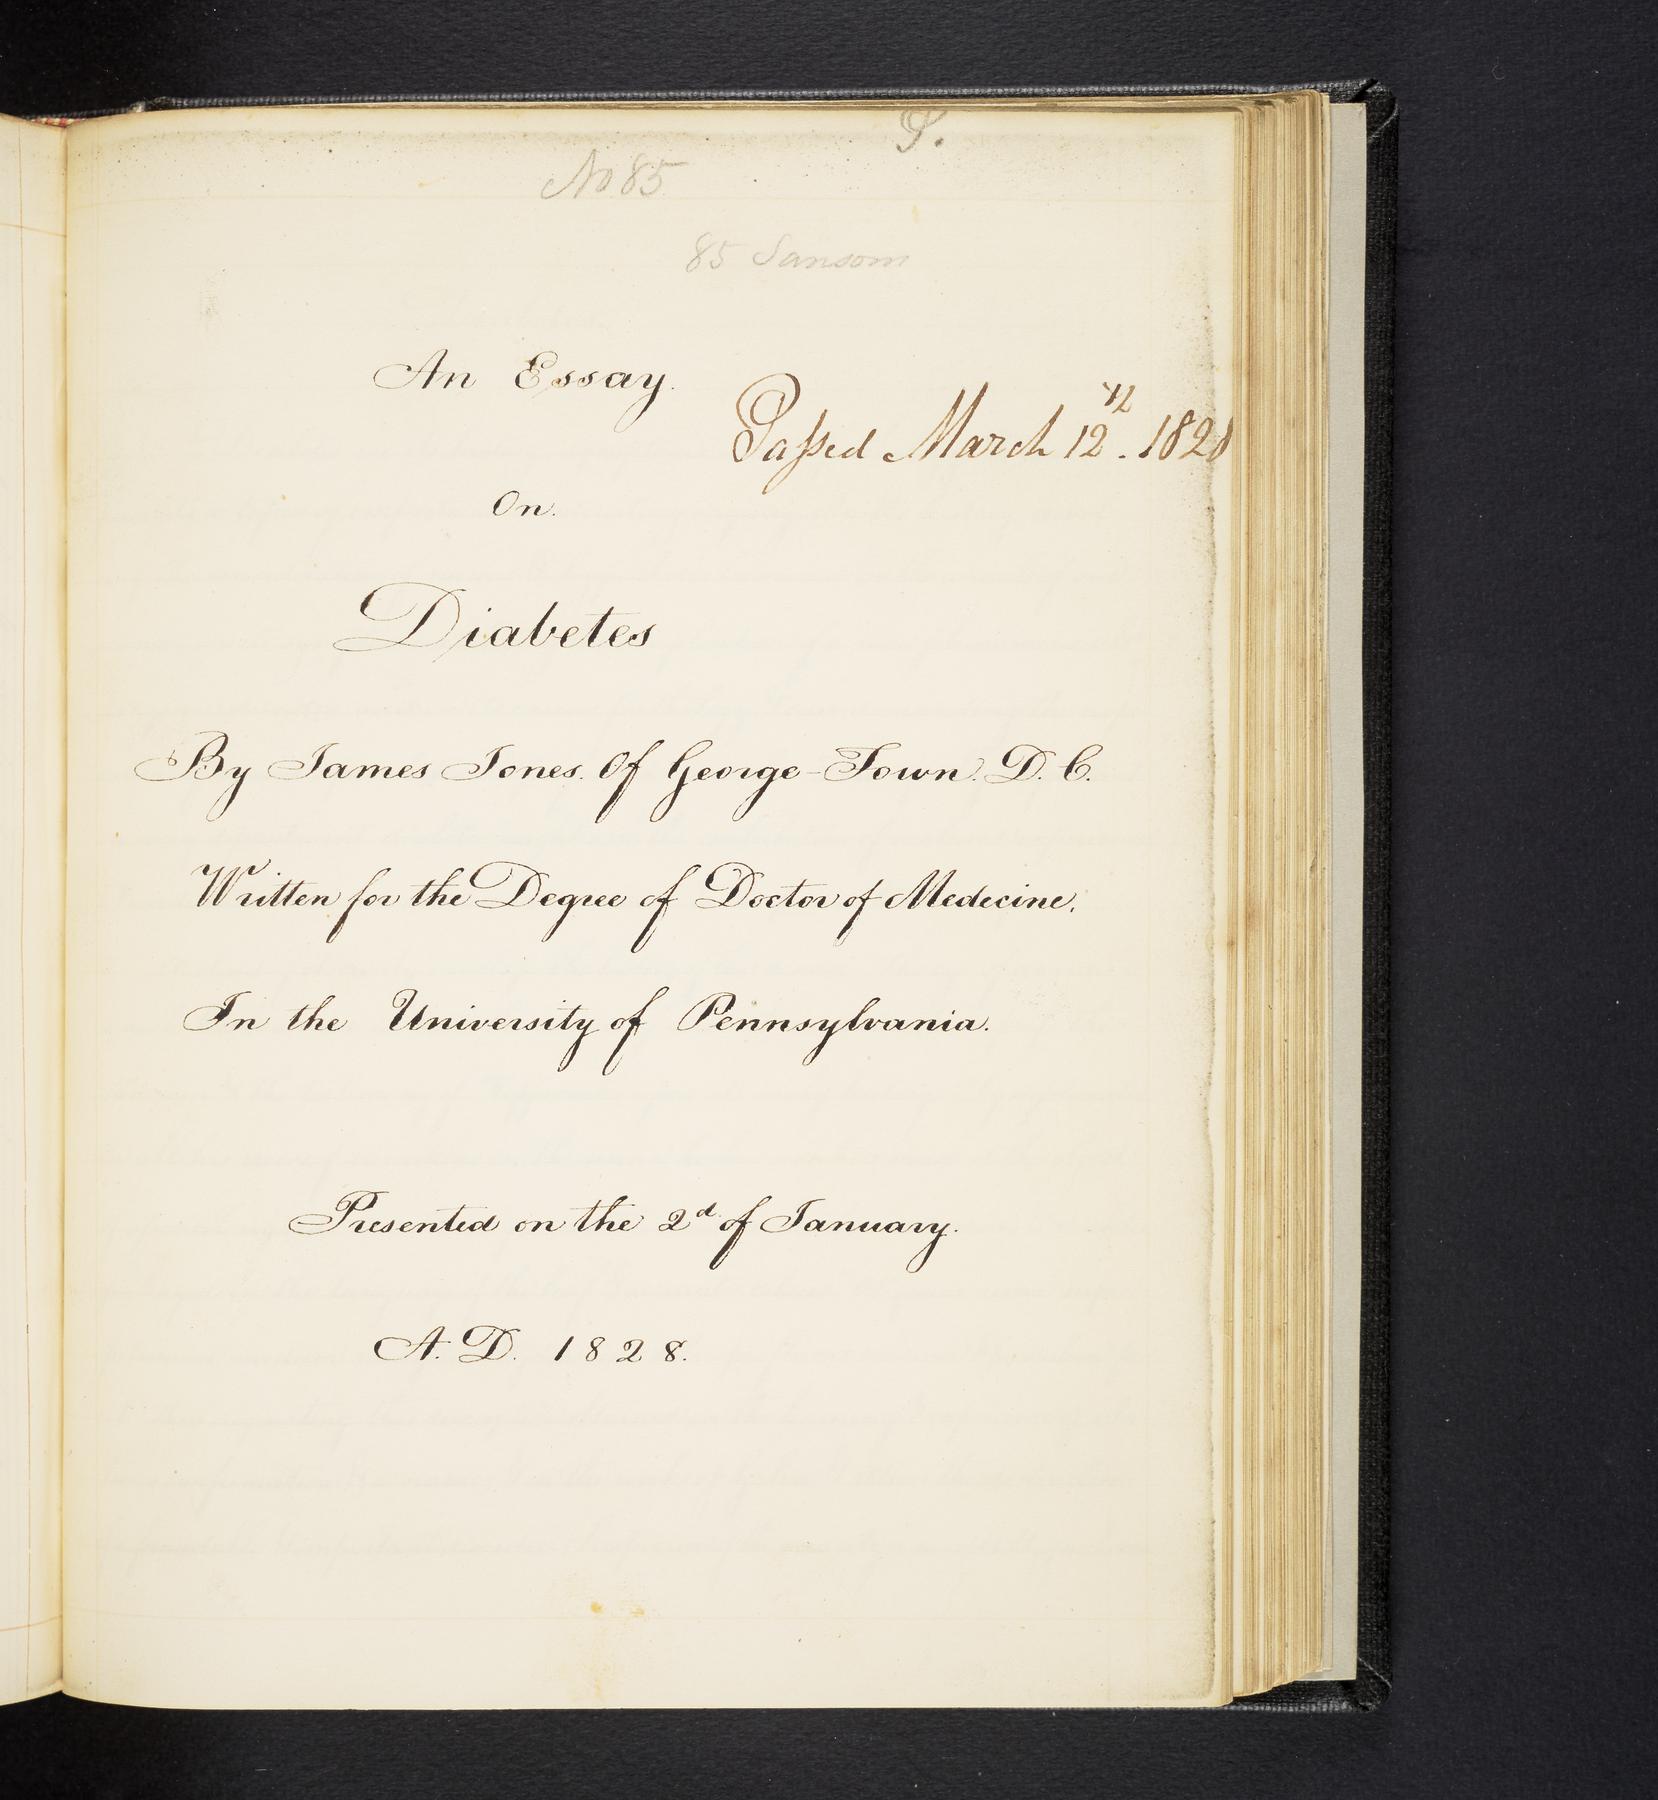 No 85
85 Sansom
An Essay.
Passed March 12th. 1828
On.
Diabetes
By James Jones. Of George-Town. D. C.
Written for the Degree of Doctor of Medecine.
In the University of Pennsylvania.
Presented on the 2d. of January.
A. D. 1828.